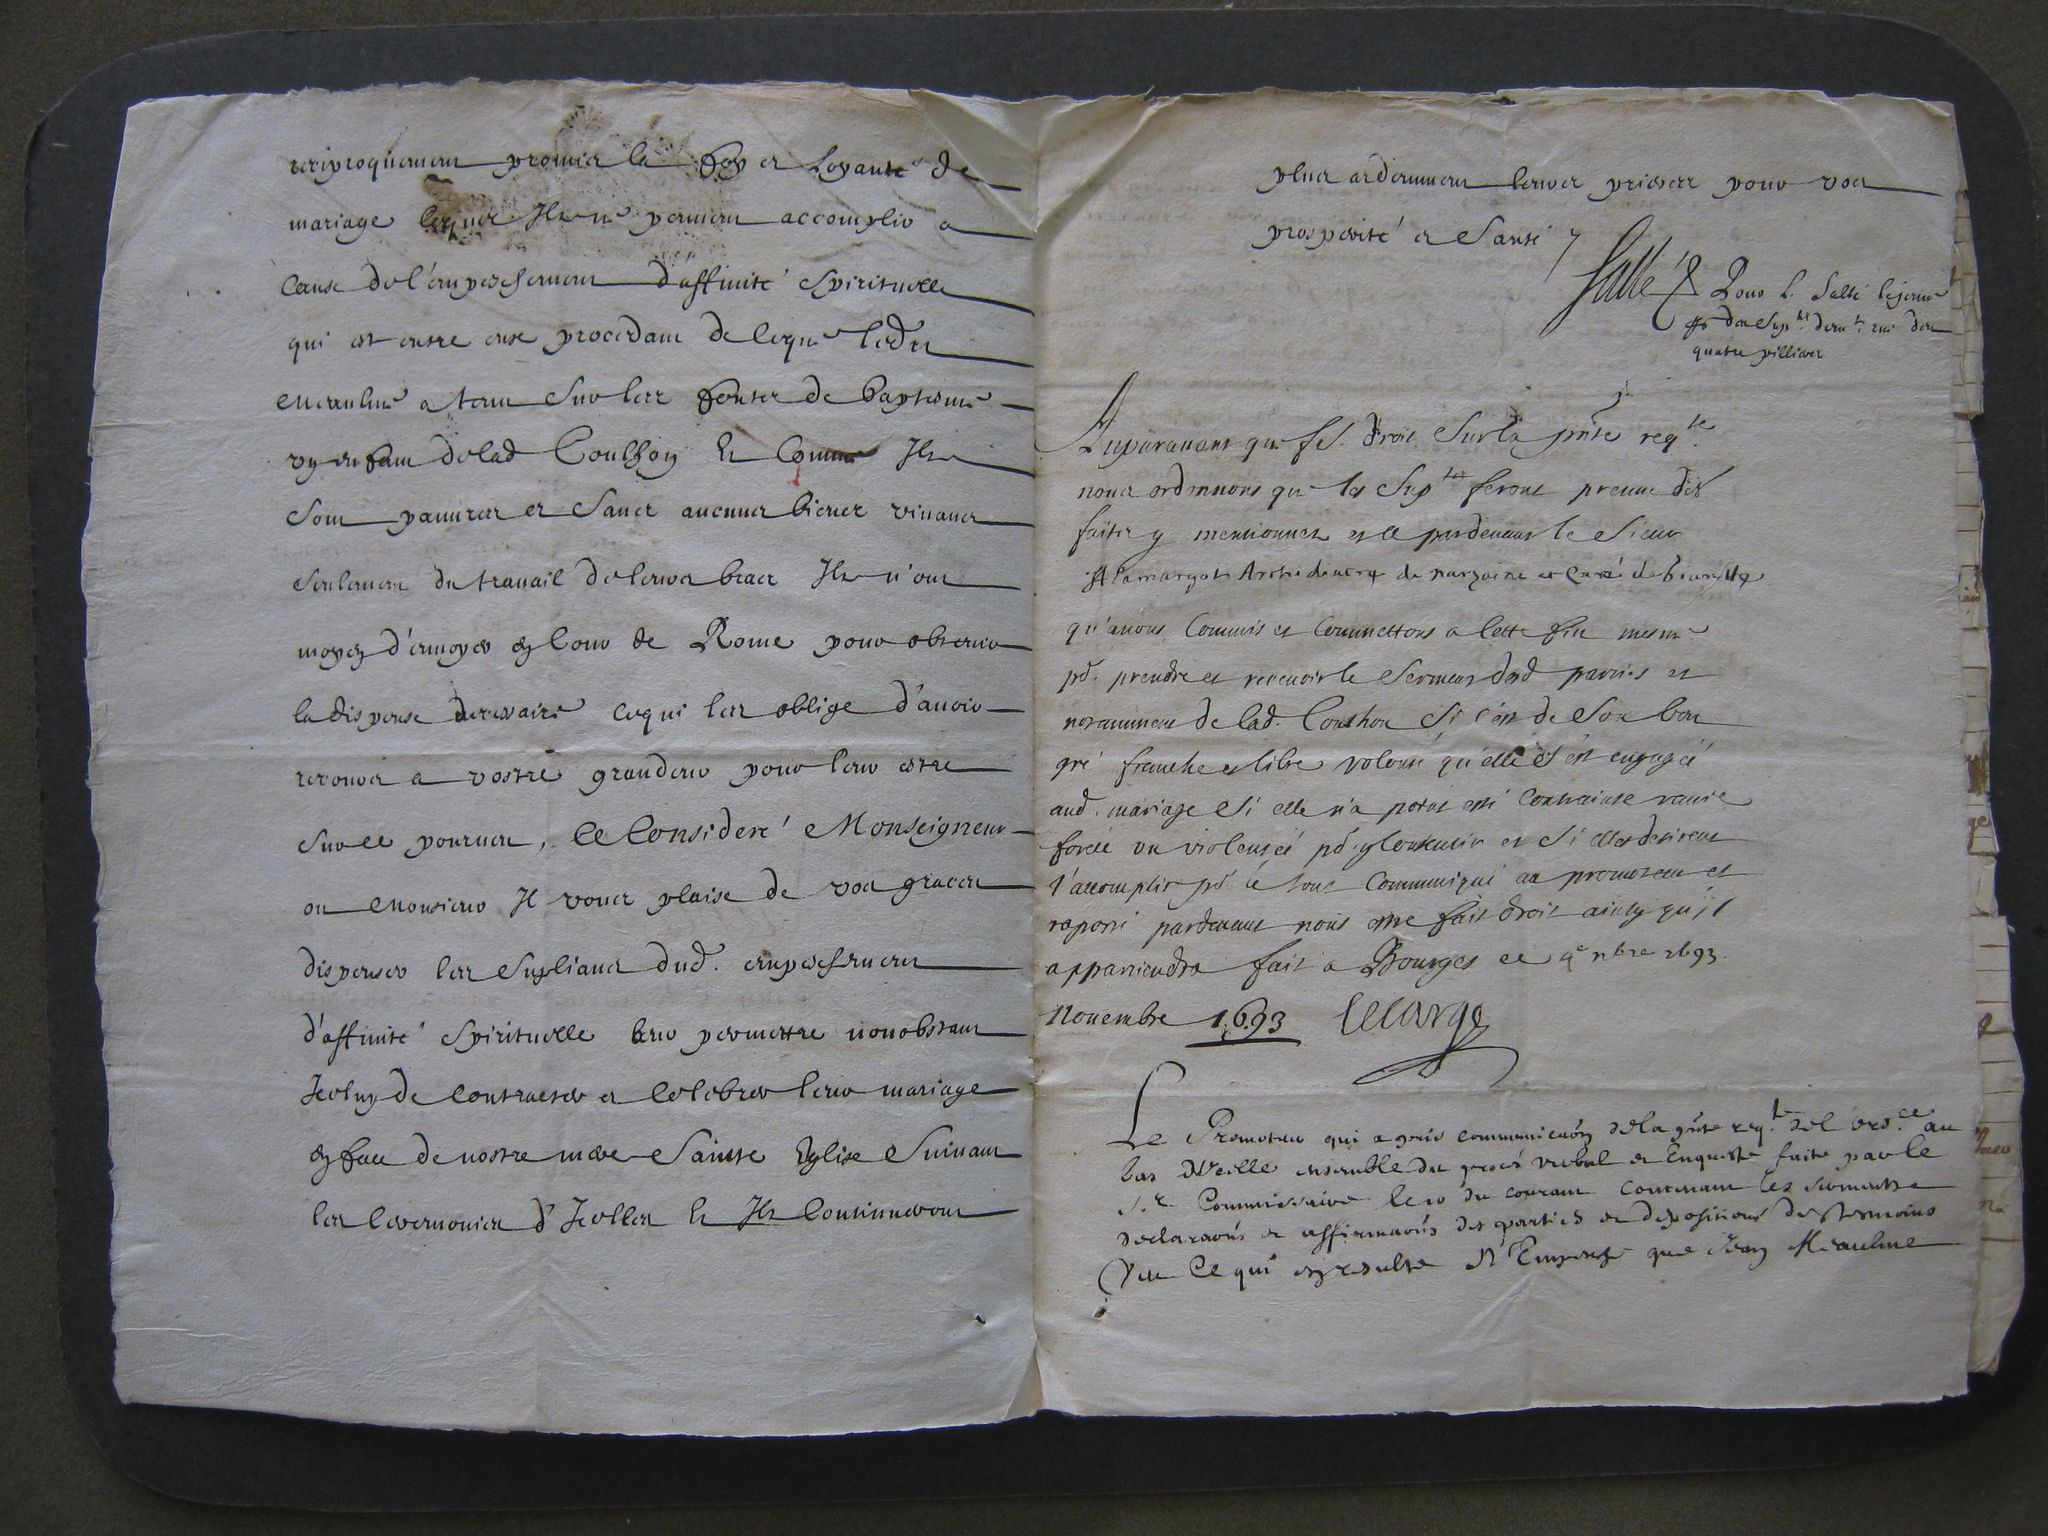 reciproquement promis la foy et Loyauté de
mariage lequel Ils ne peuvent accomplir a
Cause de l'empeschement d'affinité Spirituelle
qui est entre eux procedant de ce que led.
Meaulme a tenu Sur les fonts de baptesme
un enfant de lad Couthon Et Comme Ils
Sont pauvres et Sans aucuns biens vivans
Seulement du travail de leurs bras Ils n'ont
moyen d'envoyer en Cour de Rome pour obtenir
la dispense necessaire ce qui les oblige d'avoir
recours a vostre grandeur pour leur estre
Sur ce pourveu, Ce Consideré Monseigneur
ou Monsieur Il vous plaise de vos graces
dispenser les Suplians dud. empeschement
d'affinité Spirituelle leur permettre nonobstant
Iceluy de Contracter et Celebrer leur mariage
en face de nostre mere Sainte Eglise Suivant
les Ceremonies d'Icelles Et Ils Continueront
plus ardemment leurs prieres pour vos
prosperité et Santé
Sallé Pour L. Sallé le jeune
des Sup.ts dem.t rue des
quatre pilliers
Auparavant que f.e droit Sur la pnte req.te
nous ordonnons que les Sup.ts feront preuve des
faits y mentionnez et ce pardevant le Sieur
Alamargot Archidiacre de narzaine et Curé de
qu'avons Commis et Commettons a cette fin mesme
pd. prendre et recevoir le Serment desd parties et
notamment de lad. Couthon Si c'est de Son bon
gré franche et libre volonté qu'elle s'est engagée
aud. mariage Si elle n'a point esté Contrainte ravie
forcée ou violentée pd. y Consentir et Si elles desirent
l'accomplir pd. le tout Communiqué au promoteur et
raporté pardevant nous estre fait droit ainsy qu'il
appartiendra fait a Bourges ce 4e nbre 1693.
Novembre 1693 Lelarge
Le Promoteur qui a pris communicaõn de la pnte req.te de l'ord.ce au
bas d'Icelle ensemble du procés verbal et Enqueste faite par le
S.r Commissaire le 10 du courant Contenant les Serments
declaraõns et affirmaõns des parties et depositions des tesmoins
Veu Ce qui en resulte N'Empesche que Jean Meaulme